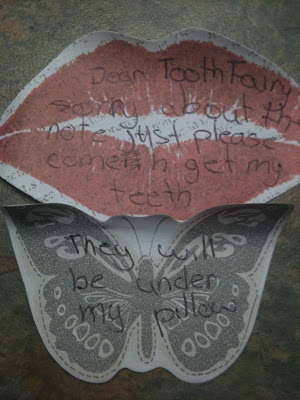 Dear Tooth Fairy
sorry about the
note just please
come n get my
teeth
They will
be under
my pillow